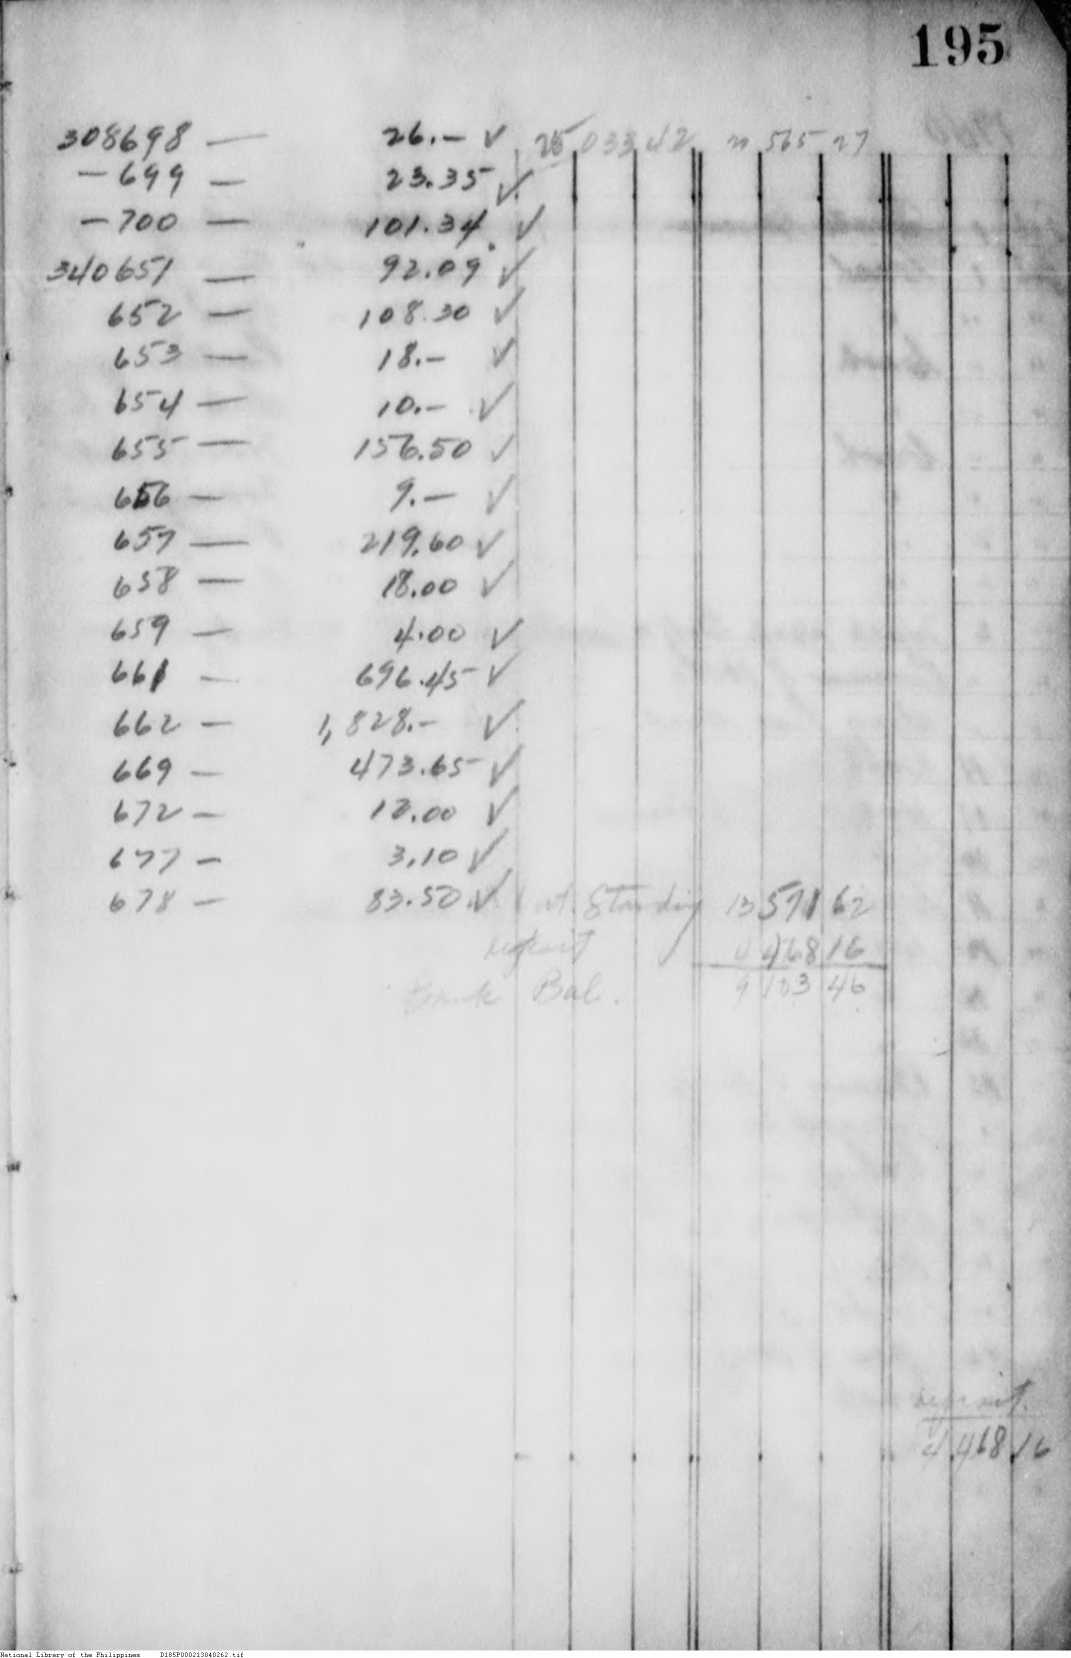 195
308698 — 26.— ✓ 25 033 42 21 565 27
— 699 — 23.35 ✓
— 700 — 101.34 ✓
340651 — 92.09 ✓
652 — 108.30 ✓
653 — 18.— ✓
654 — 10.— ✓
655 — 156.50 ✓
656 — 9.— ✓
657 — 219.60 ✓
658 — 18.00 ✓
659 — 4.00 ✓
661 — 696.45 ✓
662 — 1,828.— ✓
669 — 473.65 ✓
672 — 12.00 ✓
677 — 3.10 ✓
678 — 83.50 ✓ out. Standing 13 571 62
deposit 4 468 16
Bank Bal. 9 103 46
deposit.
4 468 16
National Library of the Philippines D185P000213040262.tif